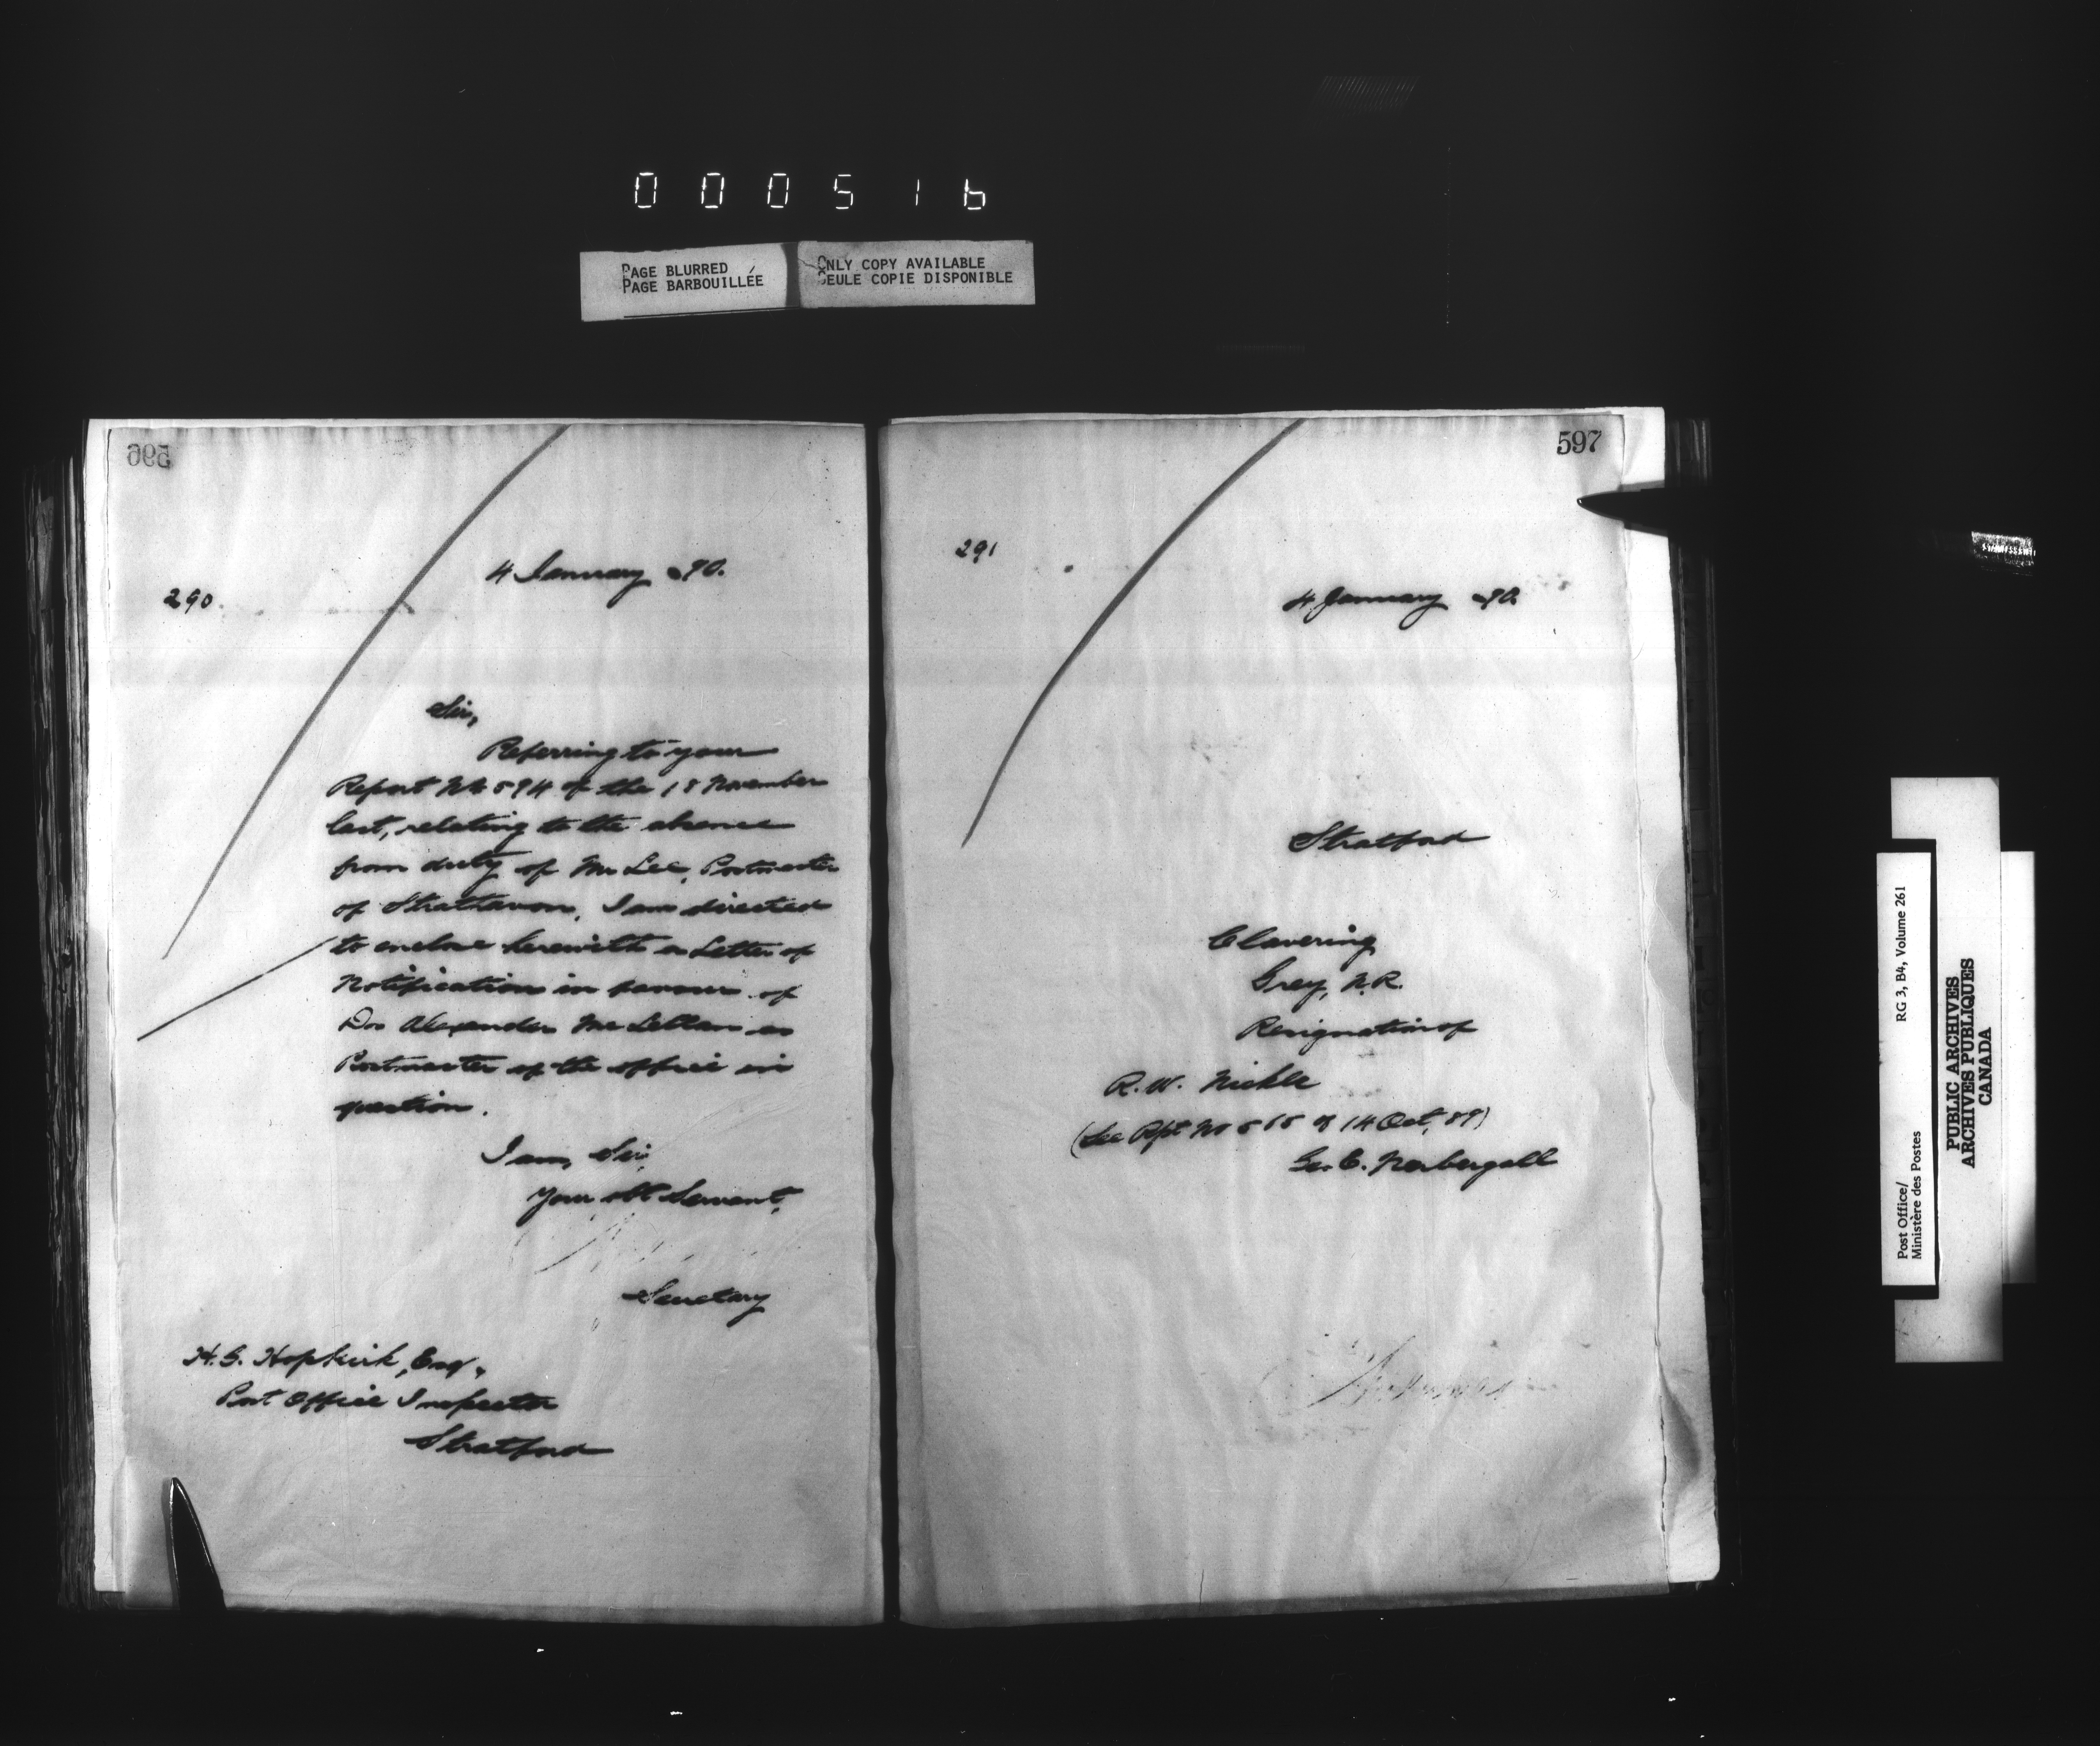 000516
PAGE BLURRED
PAGE BARBOUILLÉE
ONLY COPY AVAILABLE
SEULE COPIE DISPONIBLE
596
4 January 90.
290
Sir,
Referring to your
Report No 594 of the 18 November
last, relating to the absence
from duty of Mr Lee, Postmaster
of Strathavon, I am directed
to enclose herewith a Letter of
Notification in favour of
Dr Alexander McLellan as
Postmaster of the office in
question.
I am, Sir,
Your obt Servant,
Secretary
H. G. Hopkirk, Esq.,
Post Office Inspector
Stratford
597
291
4 January 90.
Stratford
Clavering
Grey, N.R.
Resignation of
R. W. Nickle
(See Rpt No 565 of 14 Oct, 89)
Geo. E.
Post Office/
Ministère des Postes
RG 3, B4, Volume 261
PUBLIC ARCHIVES
ARCHIVES PUBLIQUES
CANADA